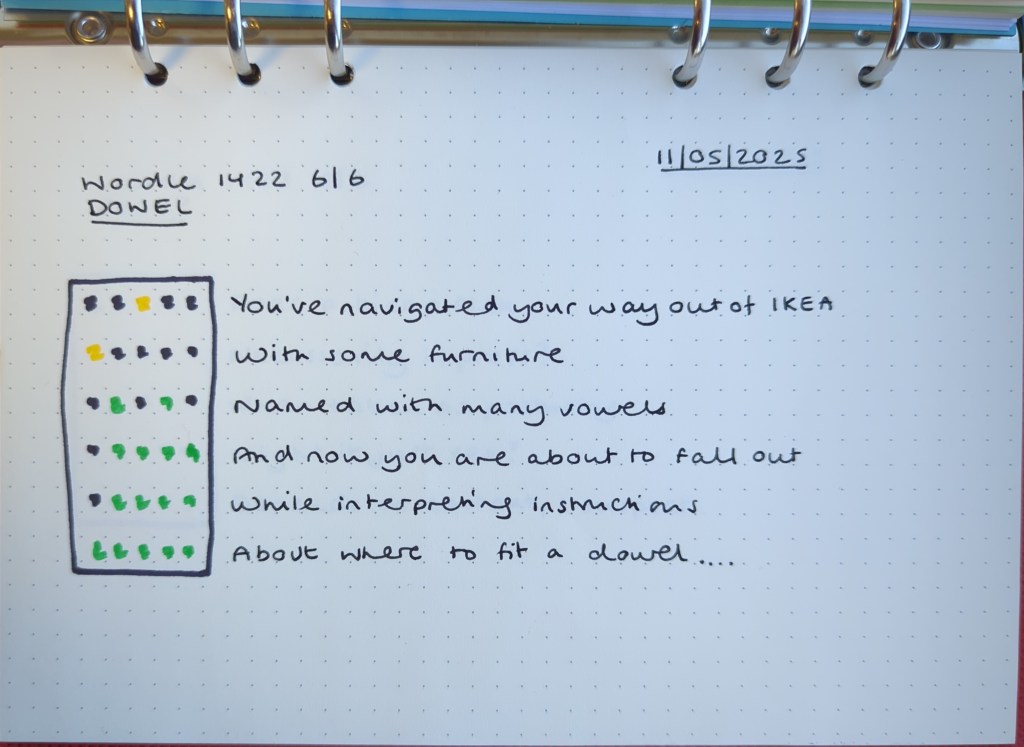 11/05/2025
Wordle 1422 6/6
DOWEL
You've navigated your way out of IKEA
With some furniture
Named with many vowels
And now you are about to fall out
While interpreting instructions
About where to fit a dowel....